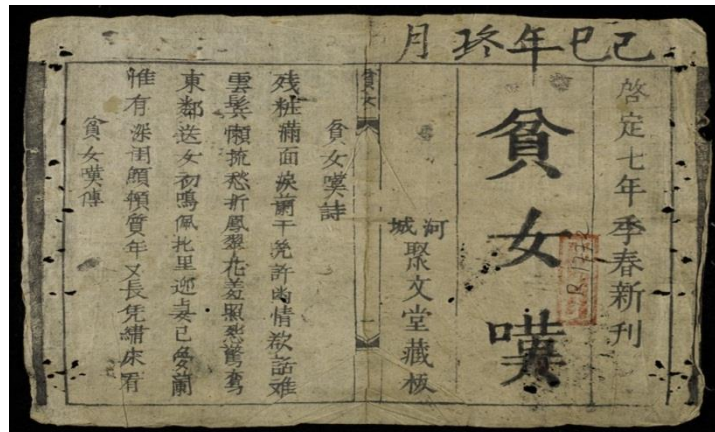 己巳年月
啓定七年季春新刊
貧女嘆
河城
聚文堂藏板
貧女
貧女嘆詩
残粧滿面淚闌干免許幽情欲話难
雲鬂懶掠愁折鳳翠花羞照恐驚鸞
東鄰送女初鳴佩北里迎妻已夢蘭
惟有深閨顦顇質年又長凭繡床看
貧女嘆傳